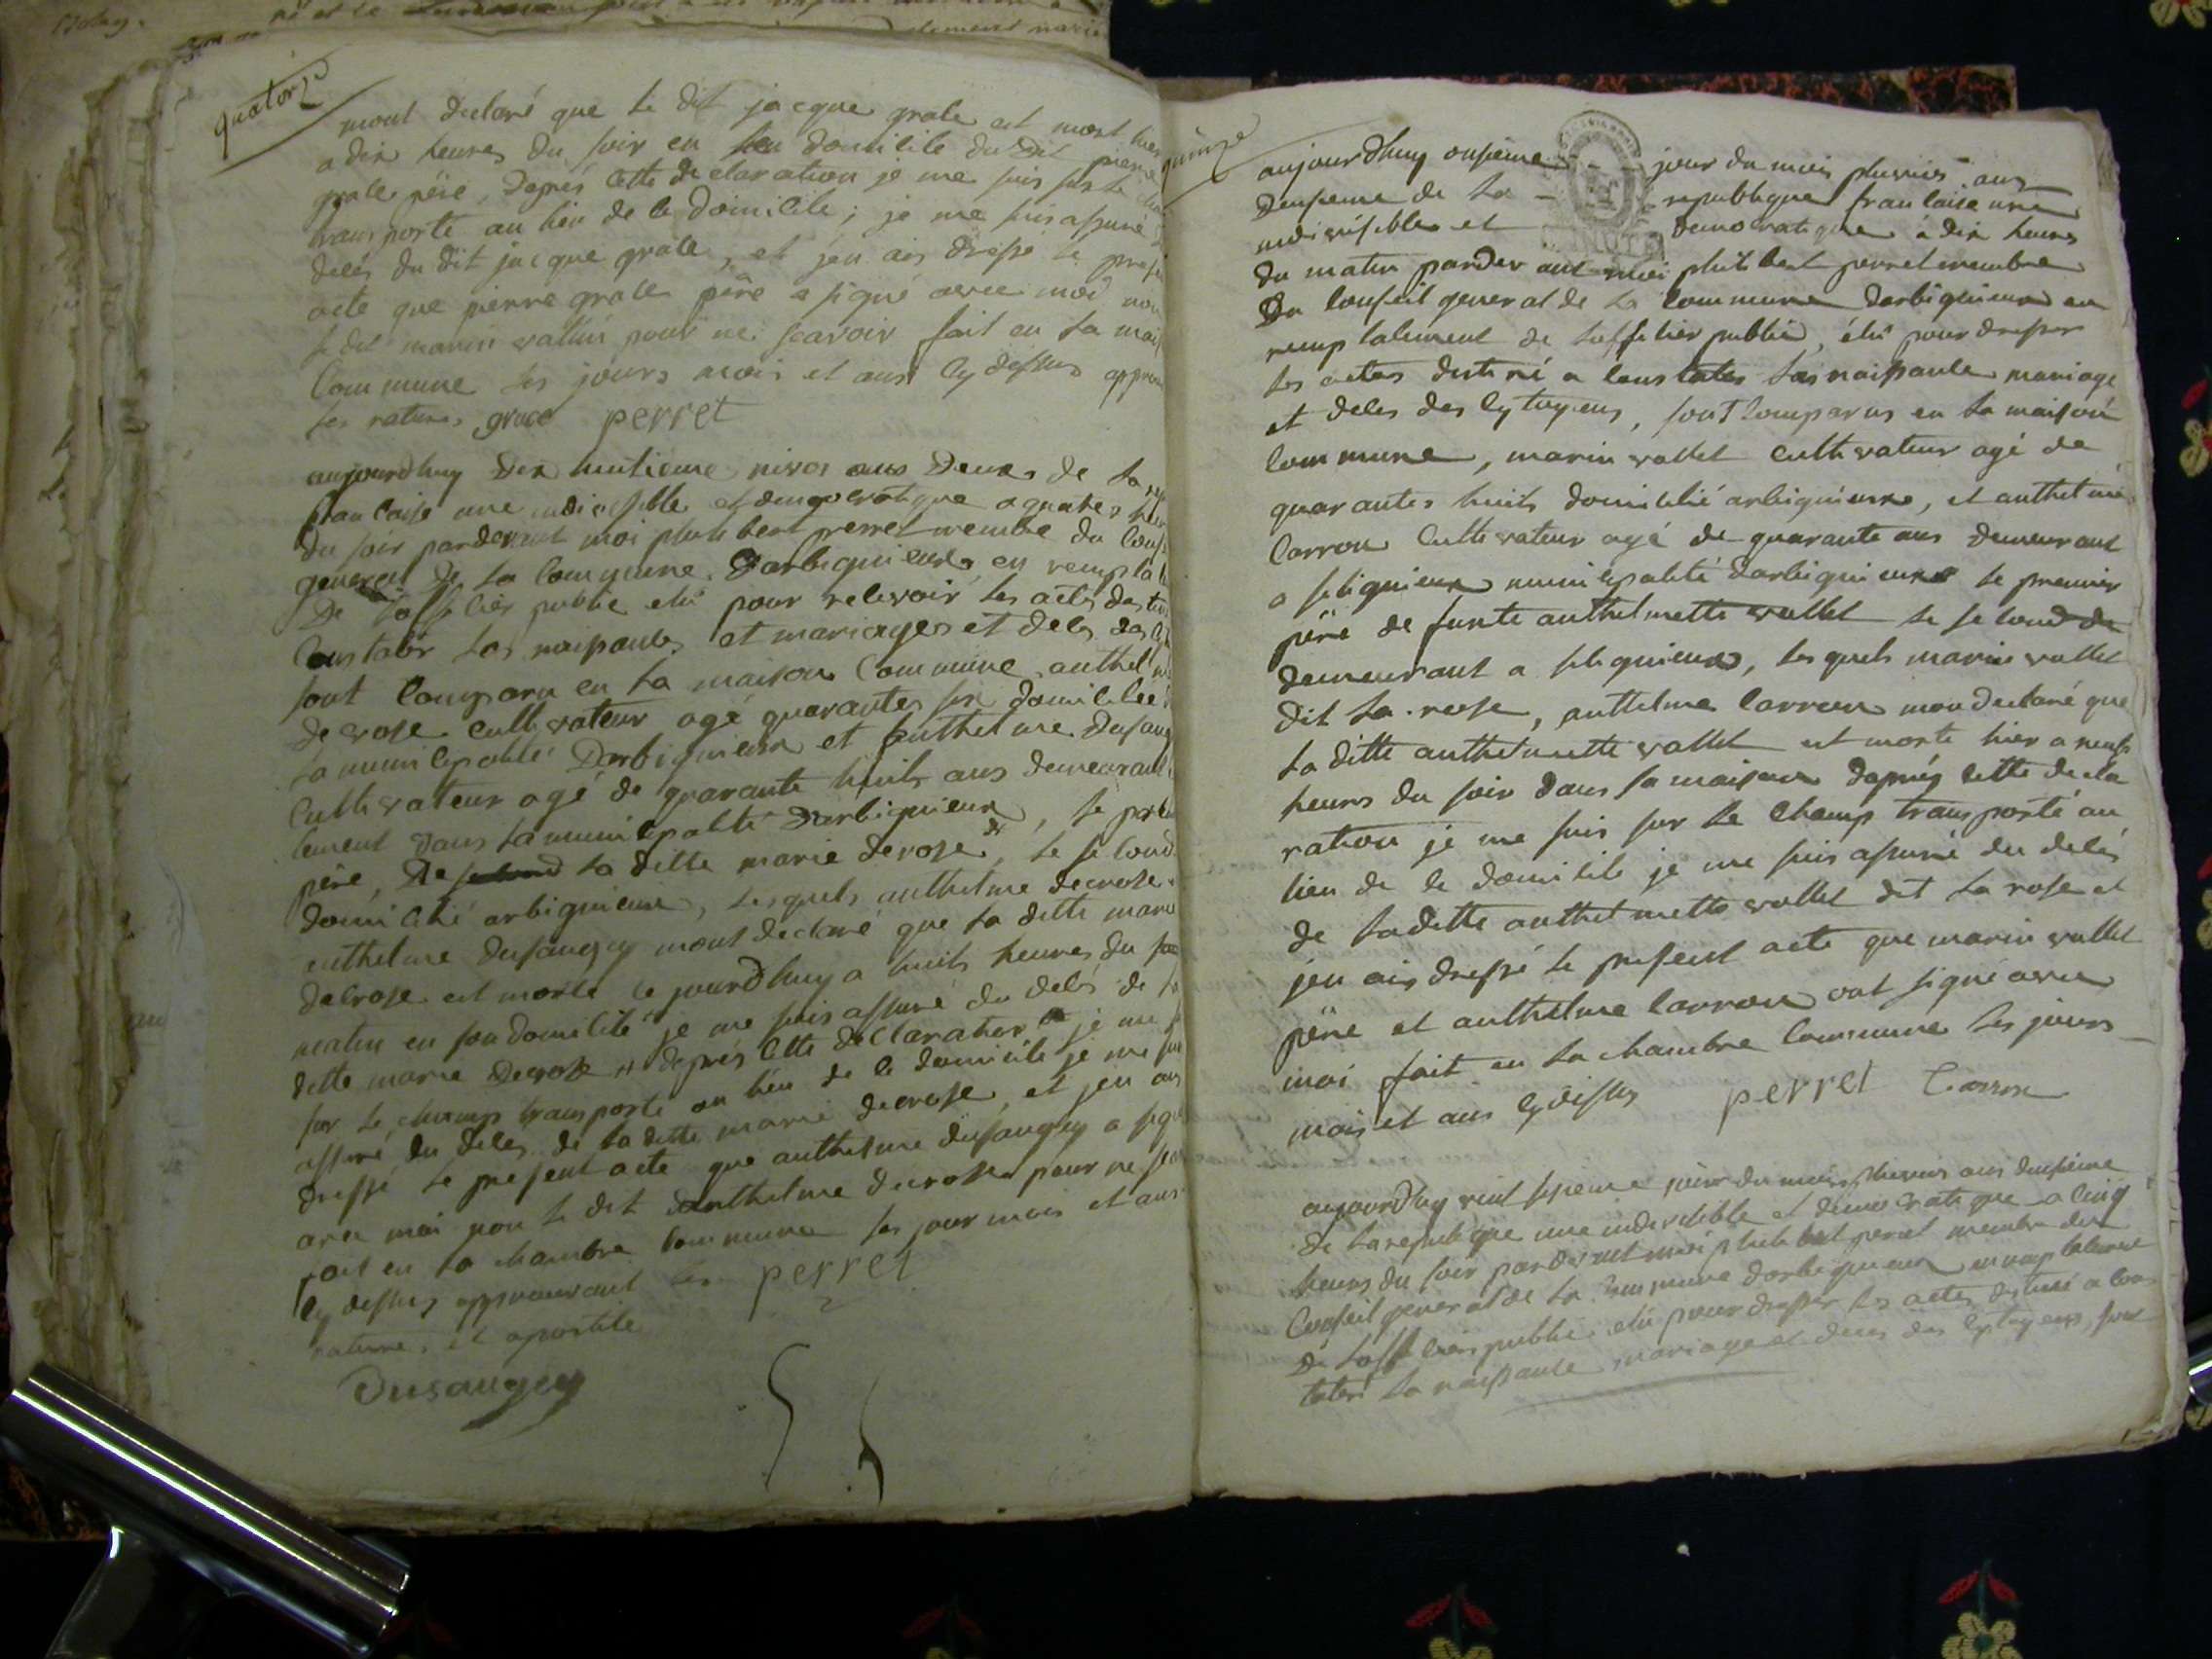 quatorze
mont declaré que le dit jacque grale est mort hier
a dix heures du soir en son domicile du dit pierre
grale père, daprés cette declaration je me suis sur le
transporté au lieu de ce domicile ; je me suis assuré
decés du dit jacque grale, et jen ais dressé le
acte que pierre grale père a signé avec moi non
le dit marin vallin pour ne scavoir fait en la
commune les jours mois et ans cy dessus
les ratures grace perret
aujourdhuy dix huitieme nivos ans deux de la
francaise une indivisible et democratique a quatres
du soir pardevant moi philibert perret membre du
general de la commune darbiguieux en
de lofficier public elu pour recevoir les actes
constater les naissances et mariages et deces des
sont comparu en la maison commune anthelme
decrose cultivateur agé quarantes six domicilié
la municipalité Darbiguieux et anthelme Dusaugey
cultivateur agé de quarante huits ans demeurant
lement dans la municipalité Darbiguieux, le
père, de la ditte marie decrose, le second
domicilié arbiguieux, lesquels anthelme decrose
anthelme dusaugey mont declaré que la ditte marie
decrose est morte ce jourdhuy a huits heures du
matin en son domicile je me suis assuré du decés de la
ditte marie decrose daprés cette declaration je me
sur le champ transporté au lieu de ce domicile je me suis
assuré du deces de la ditte marie decrose, et jen ais
dressé le present acte que anthelme dusaugey a signé
avec moi non le dit anthelme decrose pour ne
fait en la chambre commune les jour mois et ans
cy dessus approuvant les perret
ratures et apostile
Dusaugey
quinze
aujourdhuy onsieme jour du mois pluvios ans
deusieme de la - republique francaise une
indivisible et democratique à dix heures
du matin pardevant moi philibert perret membre
du conseil general de la commune darbiguieux en
remplacement de lofficier public, élu pour dresser
les actes destiné a constater les naissance mariage
et deces des cytoyens, sont comparus en la maison
commune, marin vallet cultivateur agé de
quarantes huits domicilié arbiguieux, et anthelme
carron cultivateur agé de quarante ans demeurant
a seliguieux municipalité darbiguieux le premier
père de funte anthelmette vallet le second de
demeurant a seliguieux, lesquels marin vallet
dit la rose, anthelme carron mon declaré que
la ditte anthelmette vallet est morte hier a neufs
heures du soir dans sa maison daprés cette decla
ration je me suis sur le champ transporté au
lieu de ce domicile je me suis assuré du decés
de la ditte anthelmette vallet dit la rose et
jen ais dressé le present acte que marin vallet
père et anthelme carron ont signé avec
moi fait en la chambre commune les jours
mois et ans cy dessus perret Carron
aujourdhuy vint sisieme jour du mois pluvios ans deusieme
de la republique une indivisible et democratique a cinq
heures du soir pardevant moi philibert perret membre du
conseil general de la commune darbiguieux en remplacement
de lofficier public elu pour dresser les actes destiné a cons
tater la naissance mariage et deces des cytoyens, sont